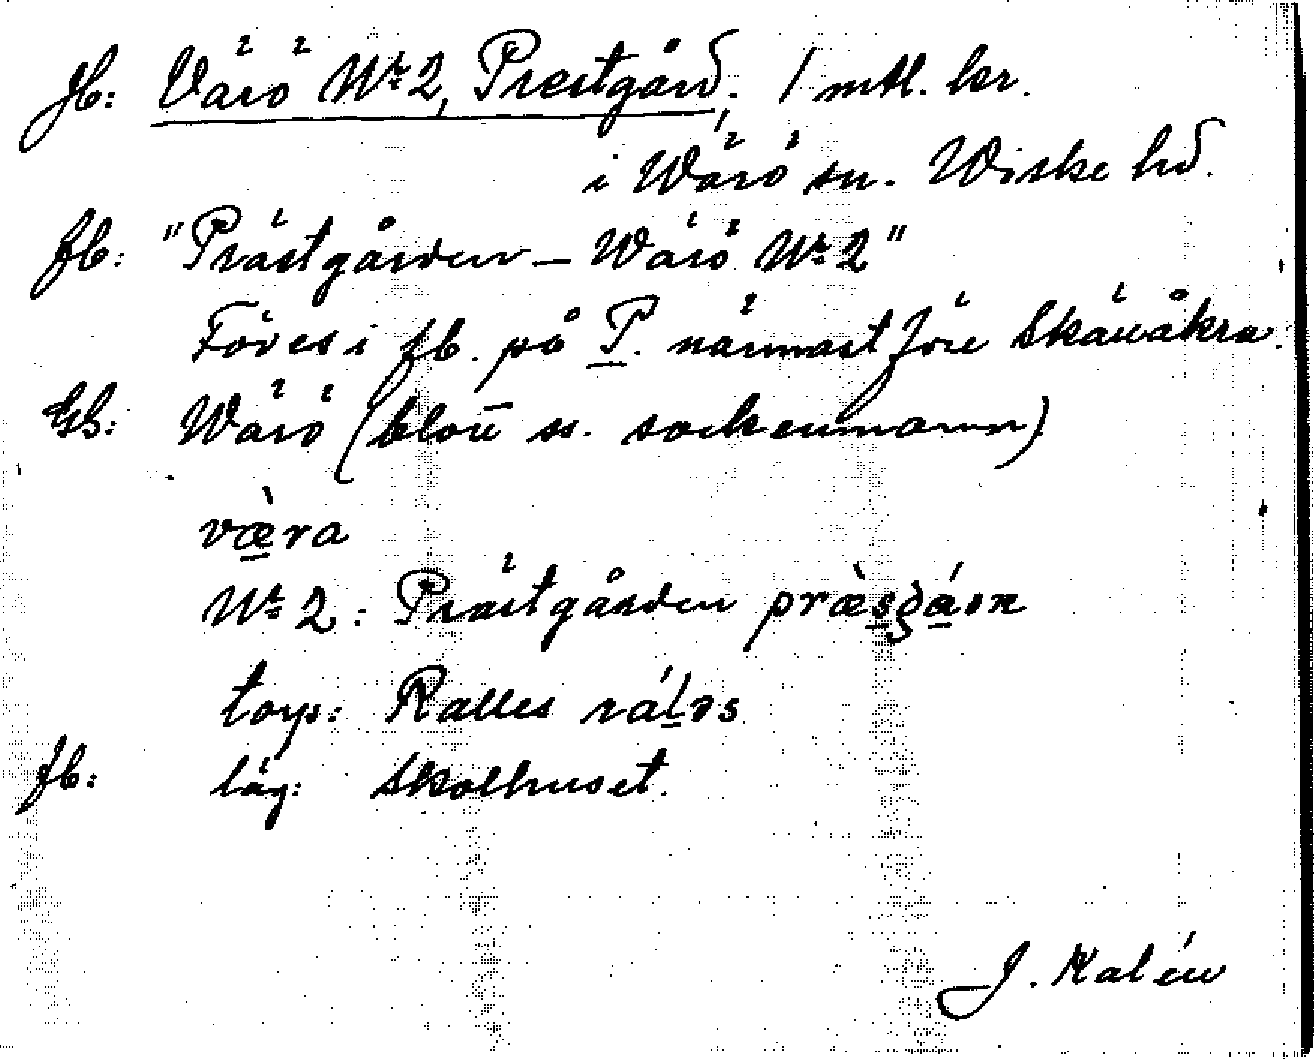 Jb: Värö Nr 2, Prestgård. 1 mtl. kr.
i Wärö sn. Wiske hd.
fb: "Prästgården – Wärö Nr 2"
Föres i fb. på P. närmast före Skäuåkra.
GS: Wärö (blott ss. sockennamn)
væ̀ra
Nr 2: Prästgården præ̀sgáɔn
torp: Ralles rálɘs
fb: läg: Skolhuset.
J. Kalén